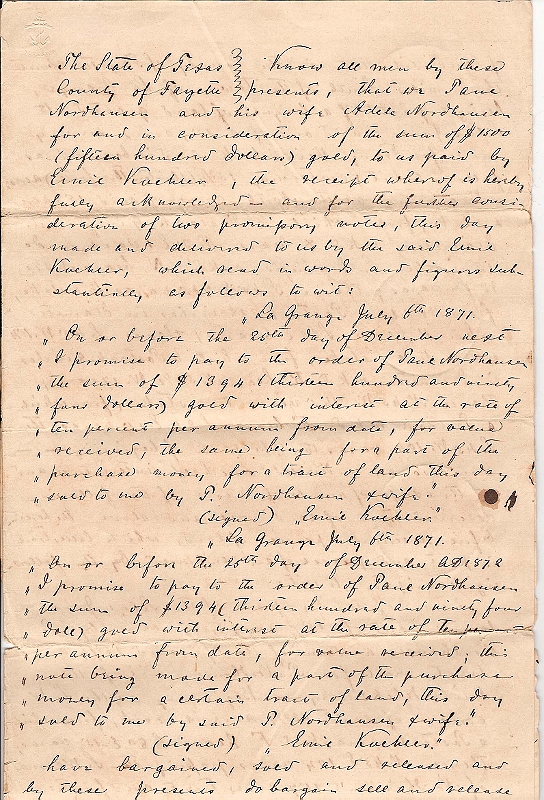 The State of Texas } Know all men by these
County of Fayette } presents, that we Paul
Nordhausen and his wife Adele Nordhausen
for and in consideration of the sum of $1500
(fifteen hundred dollars) gold, to us paid by
Emil Koehler, the receipt whereof is hereby
fully acknowledged – and for the further consi-
deration of two promissory notes, this day
made and delivered to us by the said Emil
Koehler, which read in words and figures sub-
stantially as follows to wit:
„La Grange July 6th 1871.
„On or before the 25th day of December next
„I promise to pay to the order of Paul Nordhausen
„the sum of $1394 (thirteen hundred and ninety
„four dollars) gold with interest at the rate of
„ten percent per annum from date, for value
„received, the same being for a part of the
„purchase money for a tract of land this day
„sold to me by P. Nordhausen & wife.
(signed) „Emil Koehler."
„La Grange July 6th 1871.
„On or before the 25th day of December AD 1872
„I promise to pay to the order of Paul Nordhausen
„the sum of $1394 (thirteen hundred and ninety four
„doll) gold with interest at the rate of ten per
„per annum from date, for value received; this
„note being made for a part of the purchase
„money for a certain tract of land, this day
„sold to me by said P. Nordhausen & wife."
(signed) „Emil Koehler."
have bargained, sold and released and
by these presents do bargain sell and release